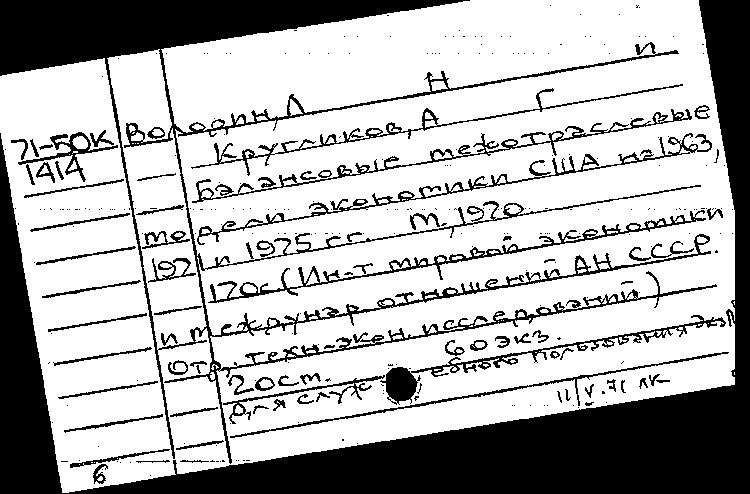 Н П
71-50К Володин, Л
1414 Кругликов, А Г
Балансовые межотраслевые
модели экономики США на 1963,
1971 и 1975 гг. М., 1970
170с (Ин-т мировой экономики
и междунар отношений АН СССР.
Отд. техн-экон. исследований)
20см. 60 экз.
Для служебного пользования Экз №
11/V.71 ЛК
6